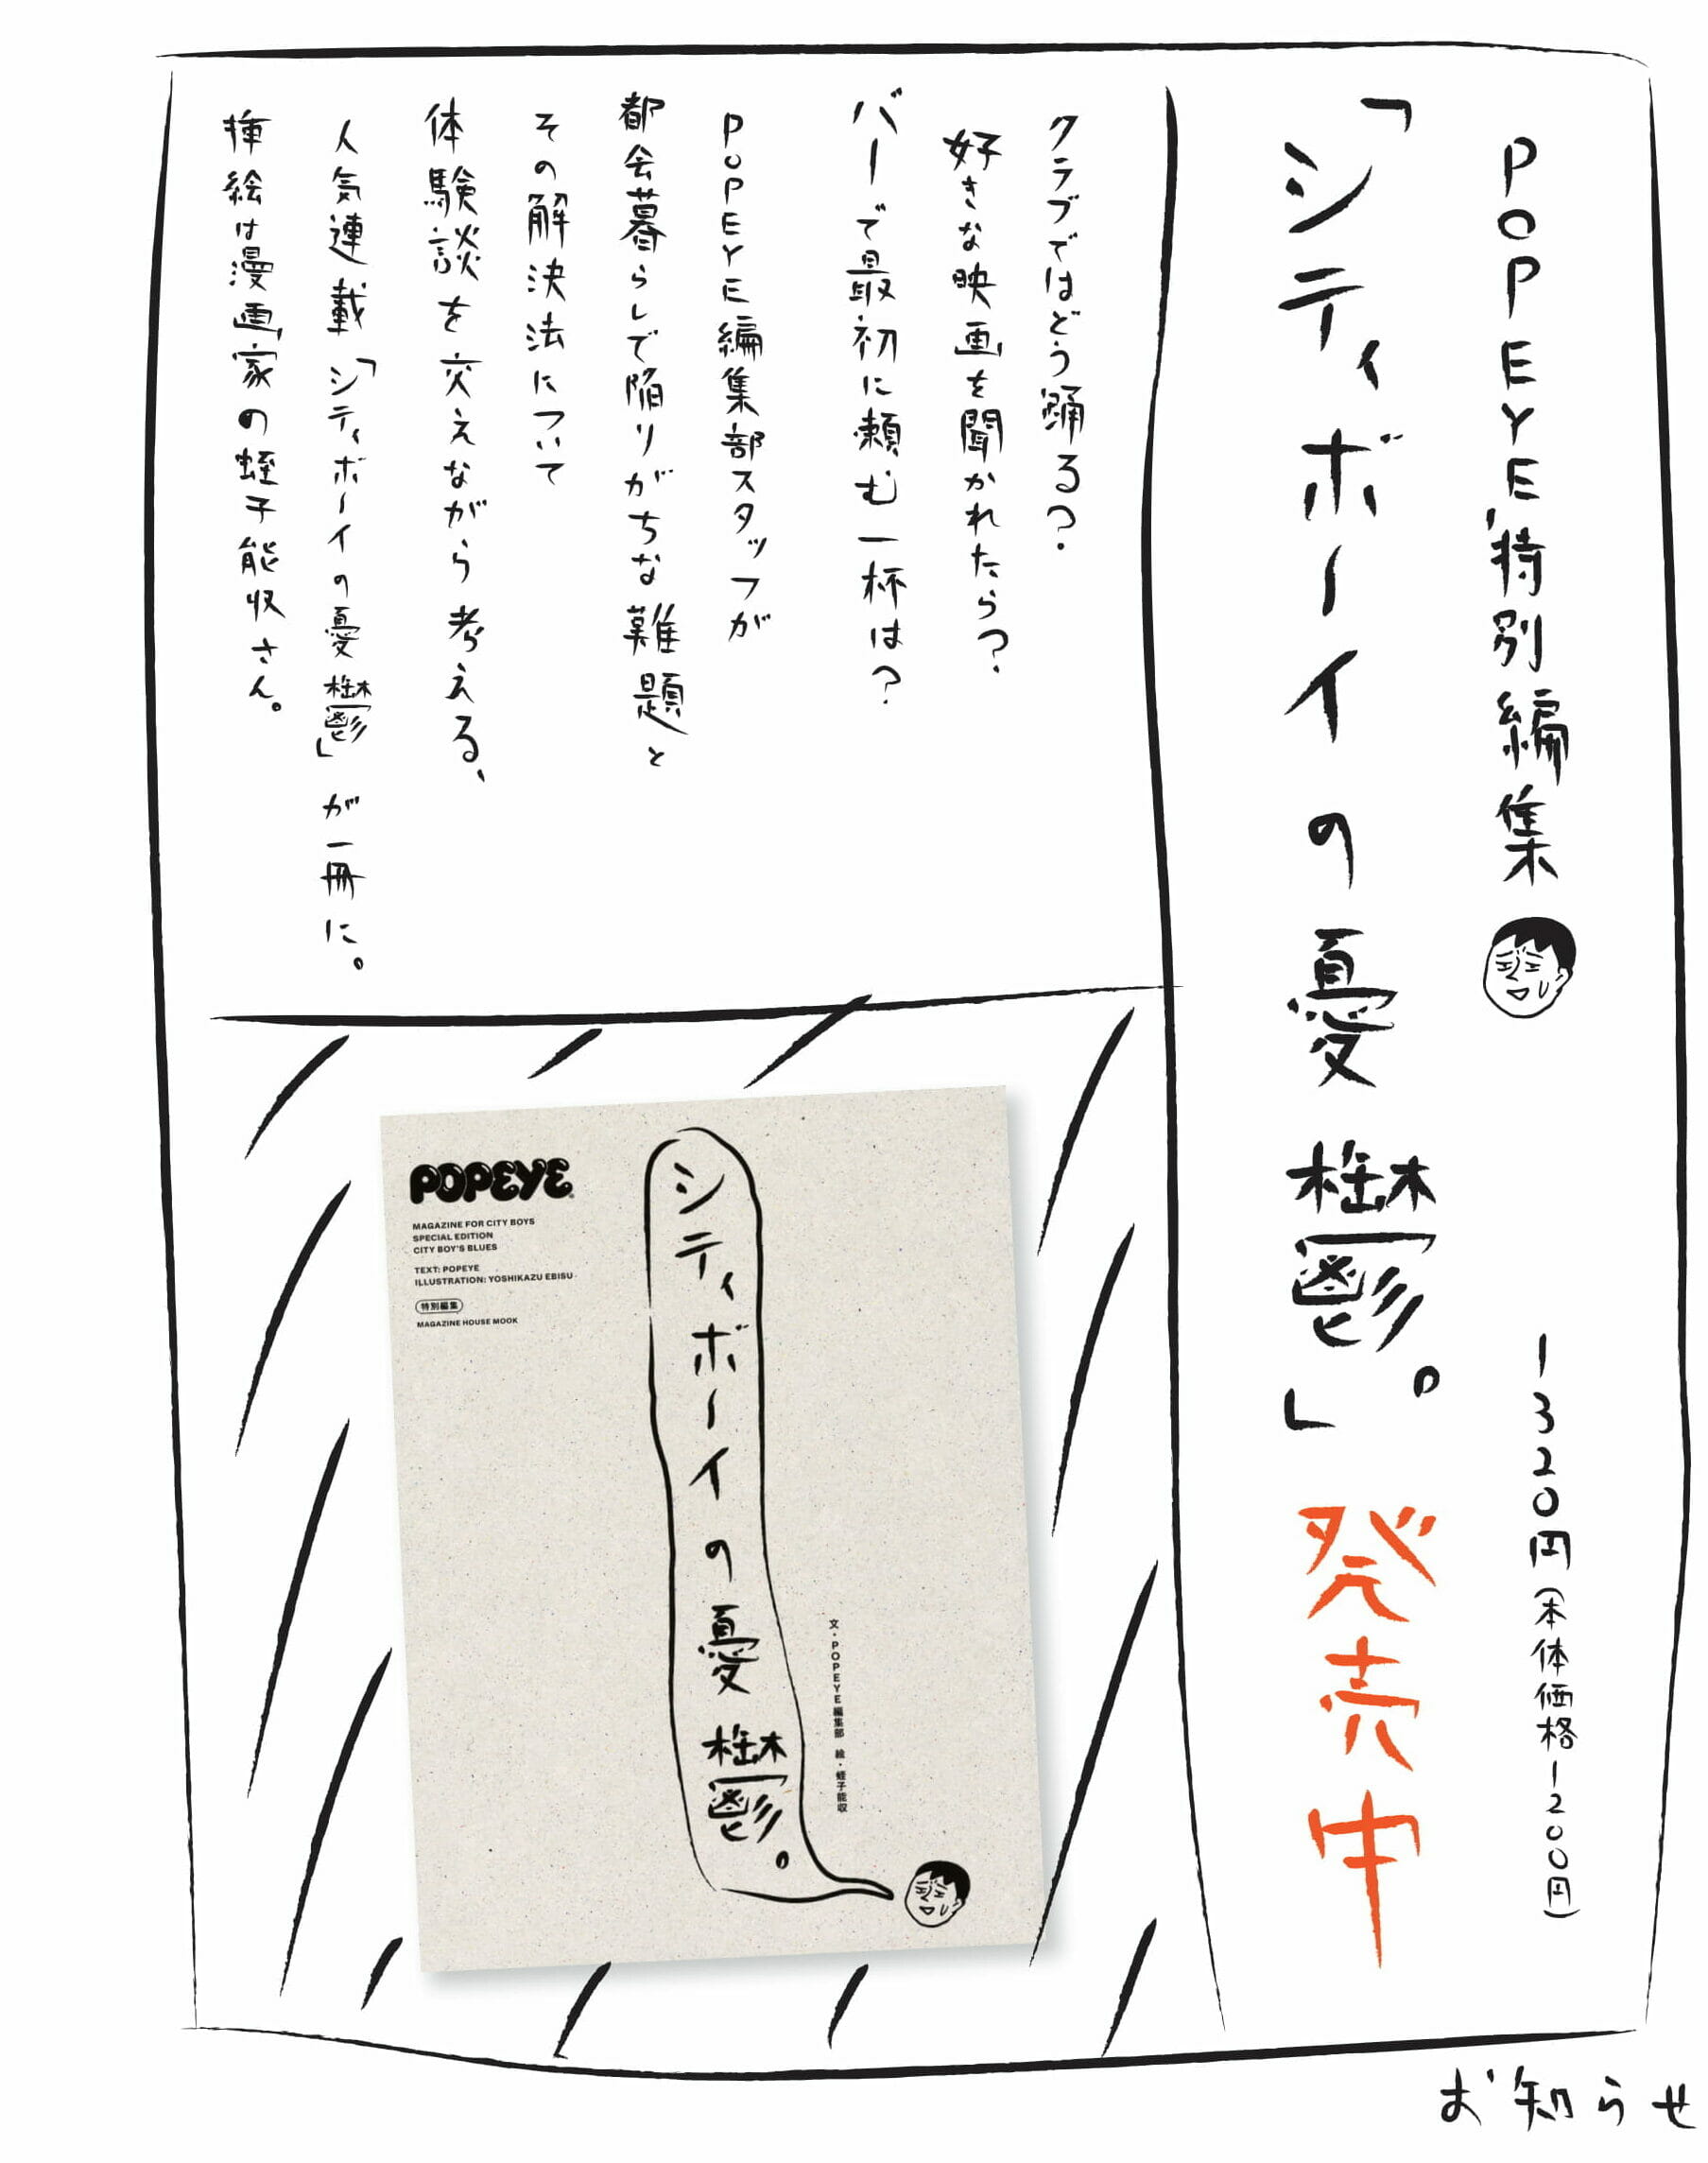 POPEYE特別編集
1320円(本体価格1200円)
「シティボーイの憂鬱。」発売中
クラブではどう踊る?
好きな映画を聞かれたら?
バーで最初に頼む一杯は?
POPEYE編集部スタッフが
都会暮らしで陥りがちな難題と
その解決法について
体験談を交えながら考える、
人気連載「シティボーイの憂鬱」が一冊に。
挿絵は漫画家の蛭子能収さん。
POPEYE
MAGAZINE FOR CITY BOYS
SPECIAL EDITION
CITY BOY'S BLUES
TEXT: POPEYE
ILLUSTRATION: YOSHIKAZU EBISU
特別編集
MAGAZINE HOUSE MOOK
シティボーイの憂鬱。
文・POPEYE編集部 絵・蛭子能収
お知らせ